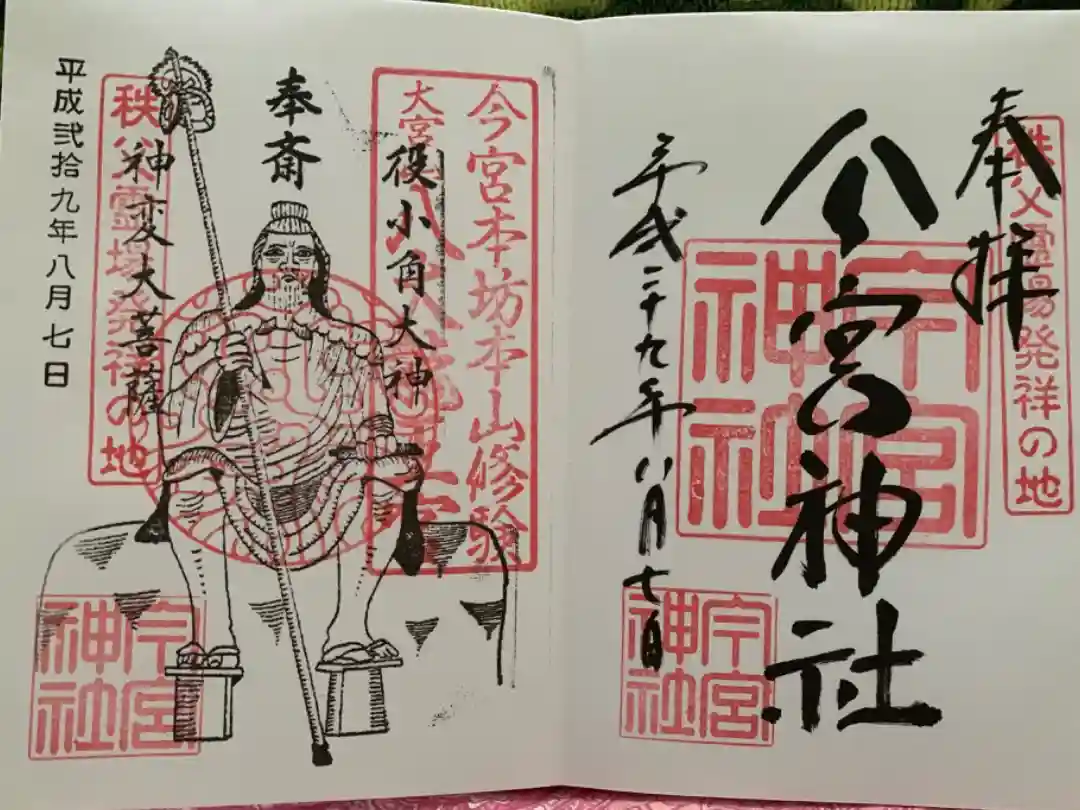 奉拝
秩父霊場発祥の地
今宮神社
今宮神社
平成二十九年八月七日
今宮神社
今宮本坊本山修験
大宮山
役小角大神
奉斎
神変大菩薩
秩父霊場発祥の地
平成弐拾九年八月七日
今宮神社